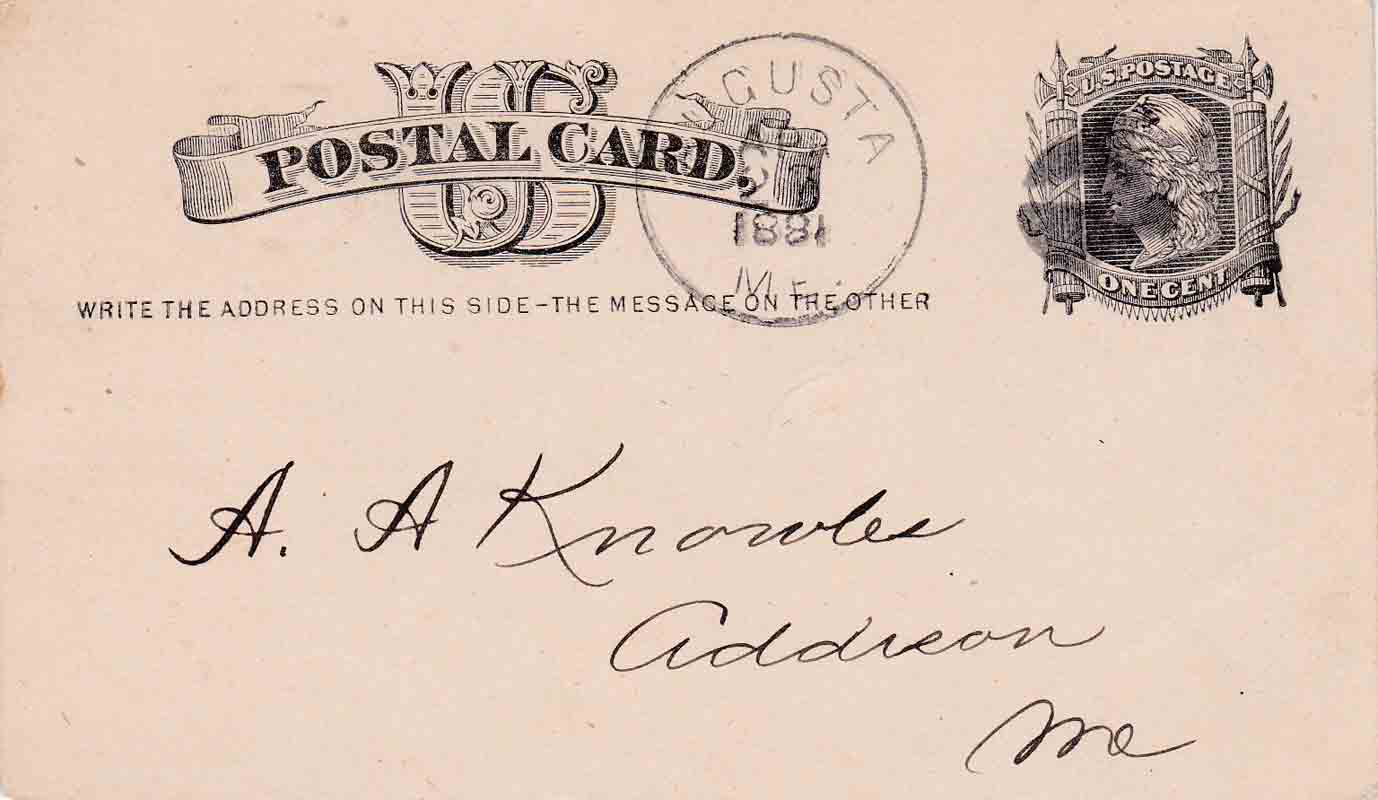 US
POSTAL CARD.
WRITE THE ADDRESS ON THIS SIDE-THE MESSAGE ON THE OTHER
GUSTA
1881
ME.
U.S. POSTAGE
ONE CENT
A. A Knowles
Addison
Me